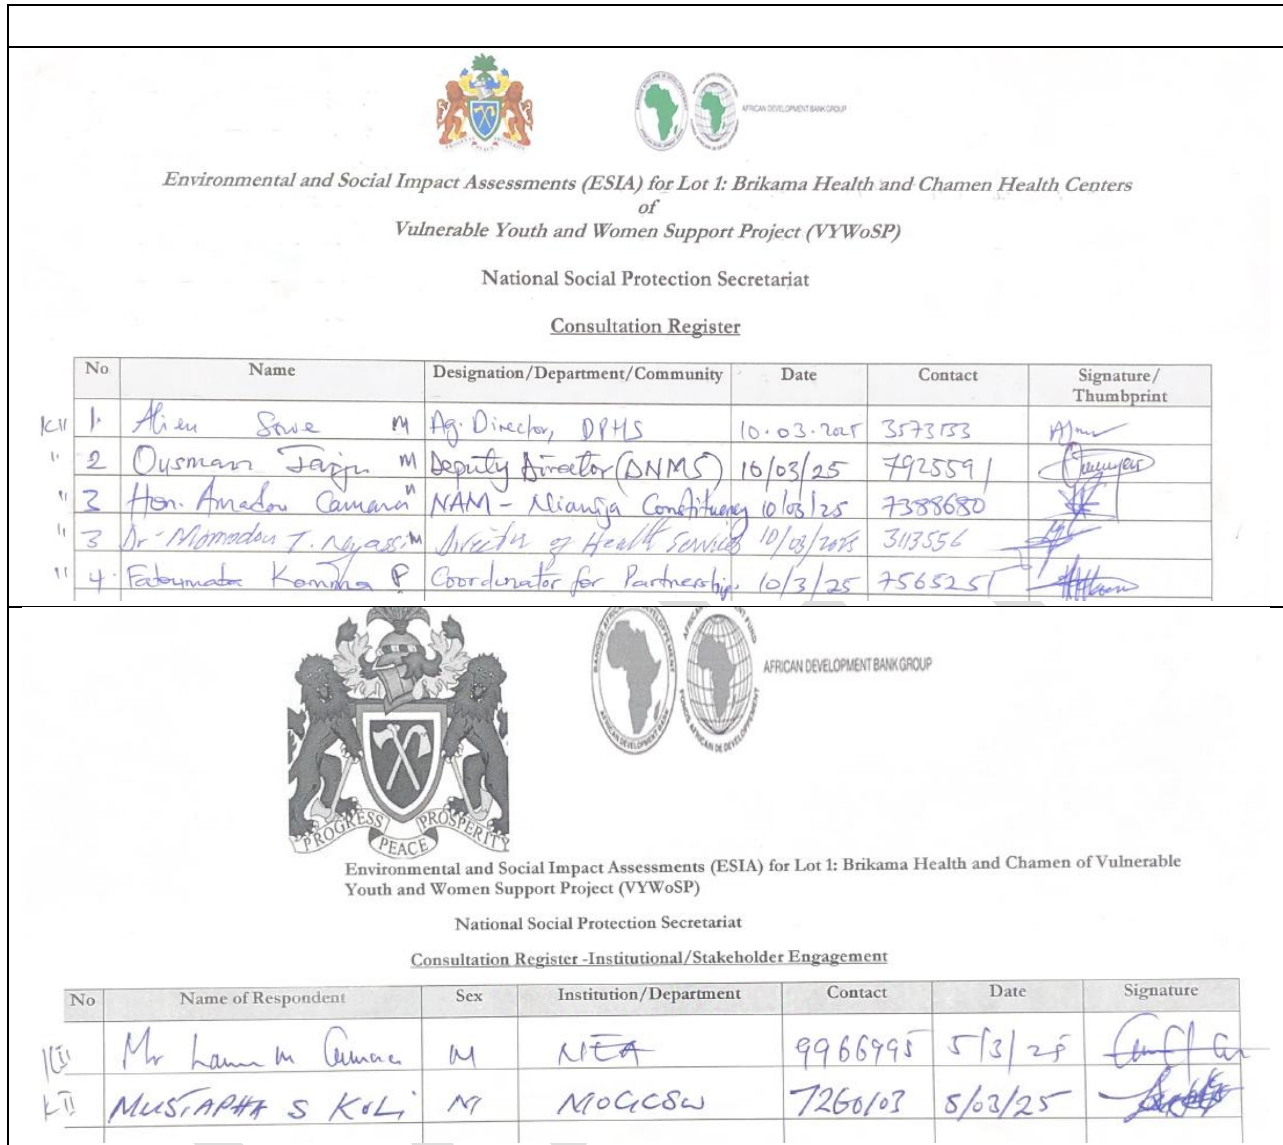 AFRICAN DEVELOPMENT BANK GROUP
Environmental and Social Impact Assessments (ESIA) for Lot 1: Brikama Health and Chamen Health Centers
of
Vulnerable Youth and Women Support Project (VYWoSP)
National Social Protection Secretariat
Consultation Register
No Name Designation/Department/Community Date Contact Signature/
Thumbprint
KII 1. Alieu Sowe M Ag. Director, DPHS 10.03.2025 3573153
" 2 Ousman M Deputy Director (DNMS) 10/03/25 7925591
" 3 Hon. Amadou Camara M NAM - Nianija Constituency 10/03/25 7388680
" 3 Dr. Momodou T. Nyassi M Director of Health Services 10/03/2025 3113556
" 4. Fatoumata F Coordinator for Partnership 10/3/25 7565251
PROGRESS PEACE PROSPERITY
BANQUE AFRICAINE DE DEVELOPPEMENT
AFRICAN DEVELOPMENT BANK
AFRICAN DEVELOPMENT BANK GROUP
Environmental and Social Impact Assessments (ESIA) for Lot 1: Brikama Health and Chamen of Vulnerable
Youth and Women Support Project (VYWoSP)
National Social Protection Secretariat
Consultation Register -Institutional/Stakeholder Engagement
No Name of Respondent Sex Institution/Department Contact Date Signature
KII Mr M M NEA 9966995 5/3/25
KII MUSTAPHA S KOLI M MOGCSW 7260103 5/03/25